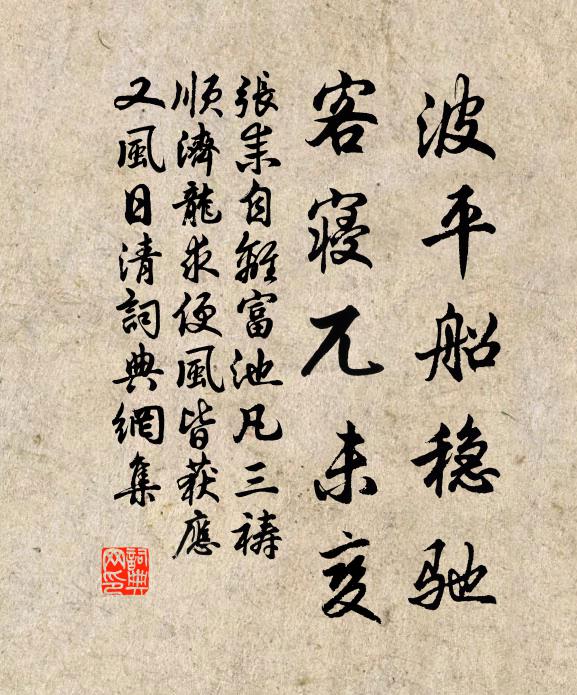 波平船稳驰
客寝兀未变
張耒自離富池凡三禱
順濟龍求便風皆获應
又風日清詞典網集
詞典网印